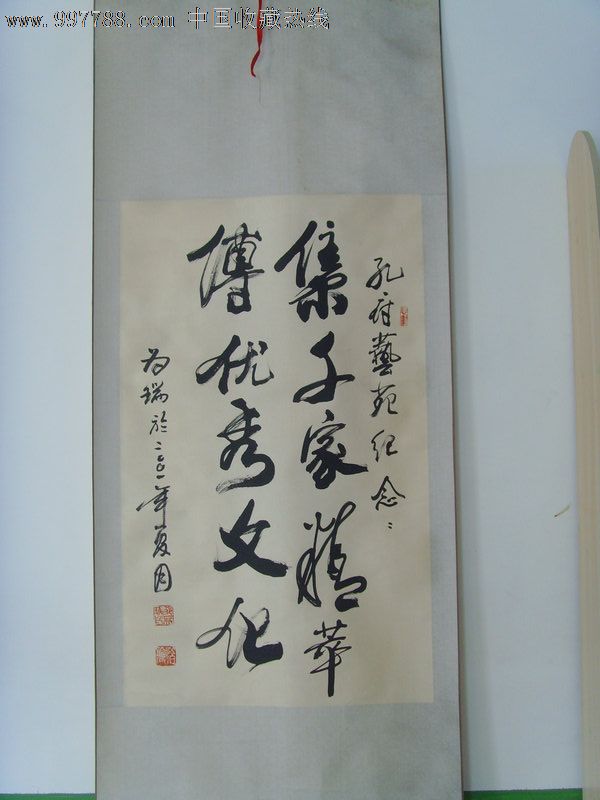 www.997788.com 中国收藏热线
孔府藝苑纪念:
集千家精華
傳优秀文化
为瑞於二〇〇一年夏月